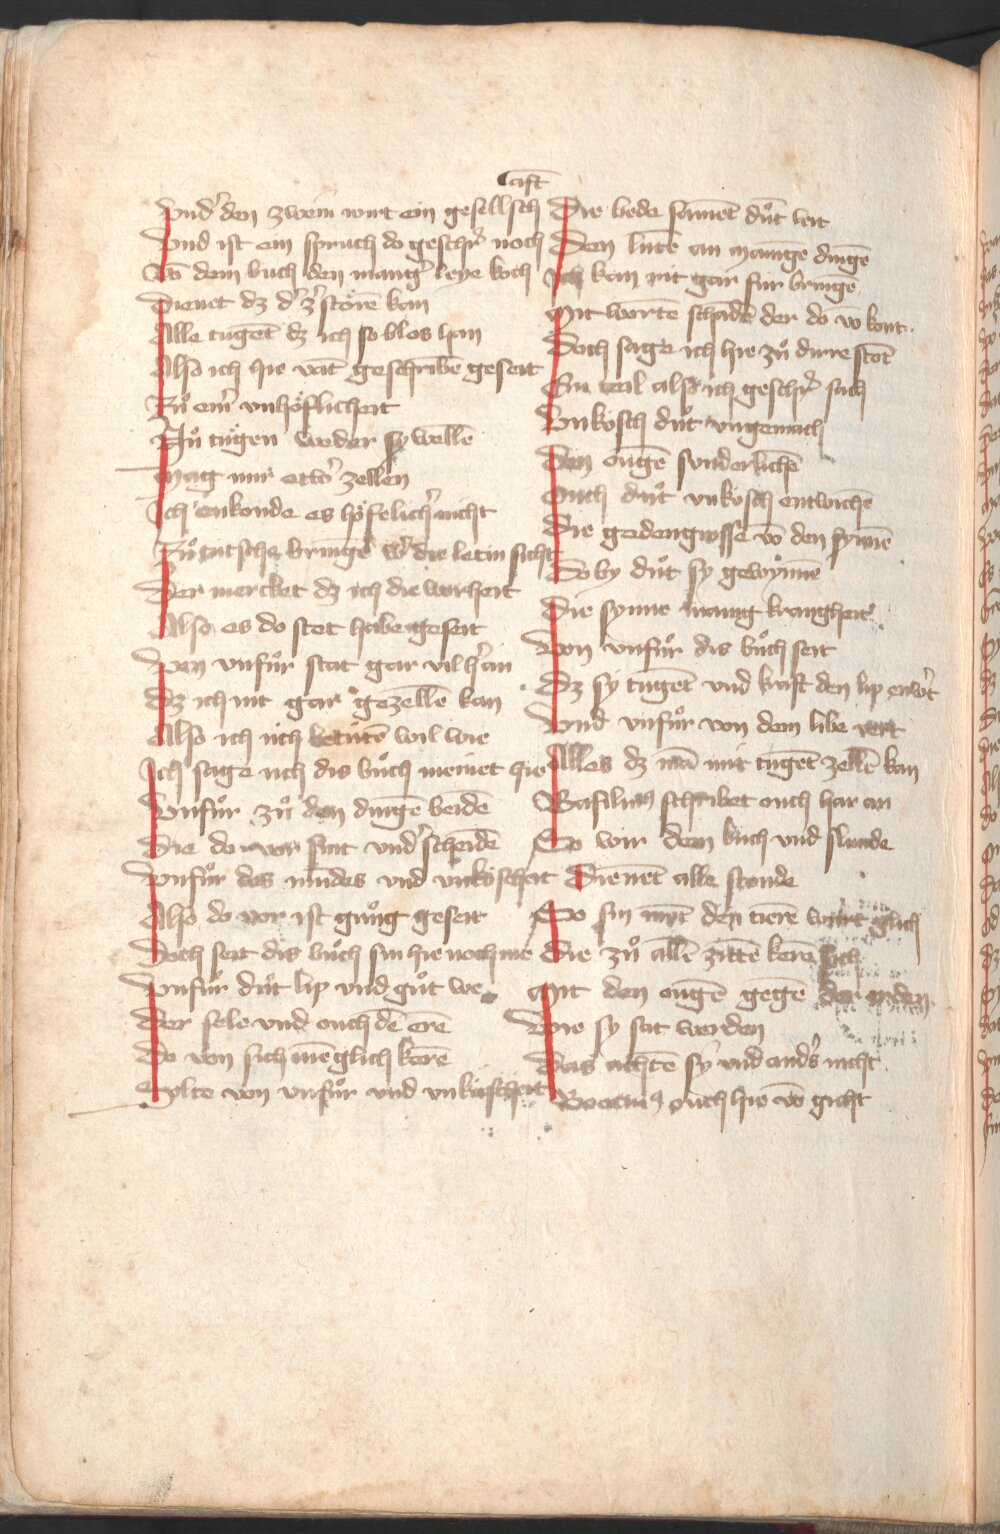 aft
Vnd' den zwein wirt ein gesellsch
Vnd ist ein spruch do geschr' noch
Vō dem buch den mang' leye koch
Dienet dz d' z'störē kan
Alle tugēt dz ich so blos han
Also ich hie vāt geschribē geseit
Zů ein' vnhöflicheit
Nů tůgen weder sy wellē
Mag mir ettw' zellen
Ich enkonde es höfelich' nicht
Zů tutsche bringē w' die letin sicht
Der mercket dz ich die worheit
Also es do stet habe geseit
Von vnfůr stat gar vil h'an
Dz ich nit gar gezellē kan
Also ich uch betutē wil wie
Ich sage uch dis bůch meinet hie
Vnfůr zů den dingē beidē
Die do vor sint vnd'scheidē
Vnfůr des mundes vnd vnköscheit
Also do vor ist gnůg geseit
Doch seit dis bůch sin hie noch me
Vnfůr důt lip vnd gůt we
Der sele vnd ouch dē erē
Do von sich mēglich kerē
Solte von vnfůr vnd vnkuscheit
Die bede samēt důt leit
Den lutē an manigē dingē
Ich kan nit gar fur bringē
Mit wortē schadē der do vō kont
Doch sage ich hie zů dirre stōt
Ein teil also ich geschr' sach
Vnkösch důt vngemach
Den ougē sunderlichē
Ouch důt vnkosch entwichē
Die gedengnisse vō den synnē
Do by důt sy gewynnē
Die synne manig krangheit
Von vnfůr dis bůch seit
Dz sy tugēt vnd kraft den lip enw't
Vnd vnfůr von dem libe vert
Alles dz mā mit tugēt zellē kan
Basilius schribet ouch har an
So wir dem buch vnd slunde
Dienēt alle stunde
So sin wirt den tierē glich
Die zů allē zittē kerē sich
Mit den ougē gegē der erden
Vne sy sat werden
Das achtē sy vnd and's nicht
Boecius ouch hie vō gicht